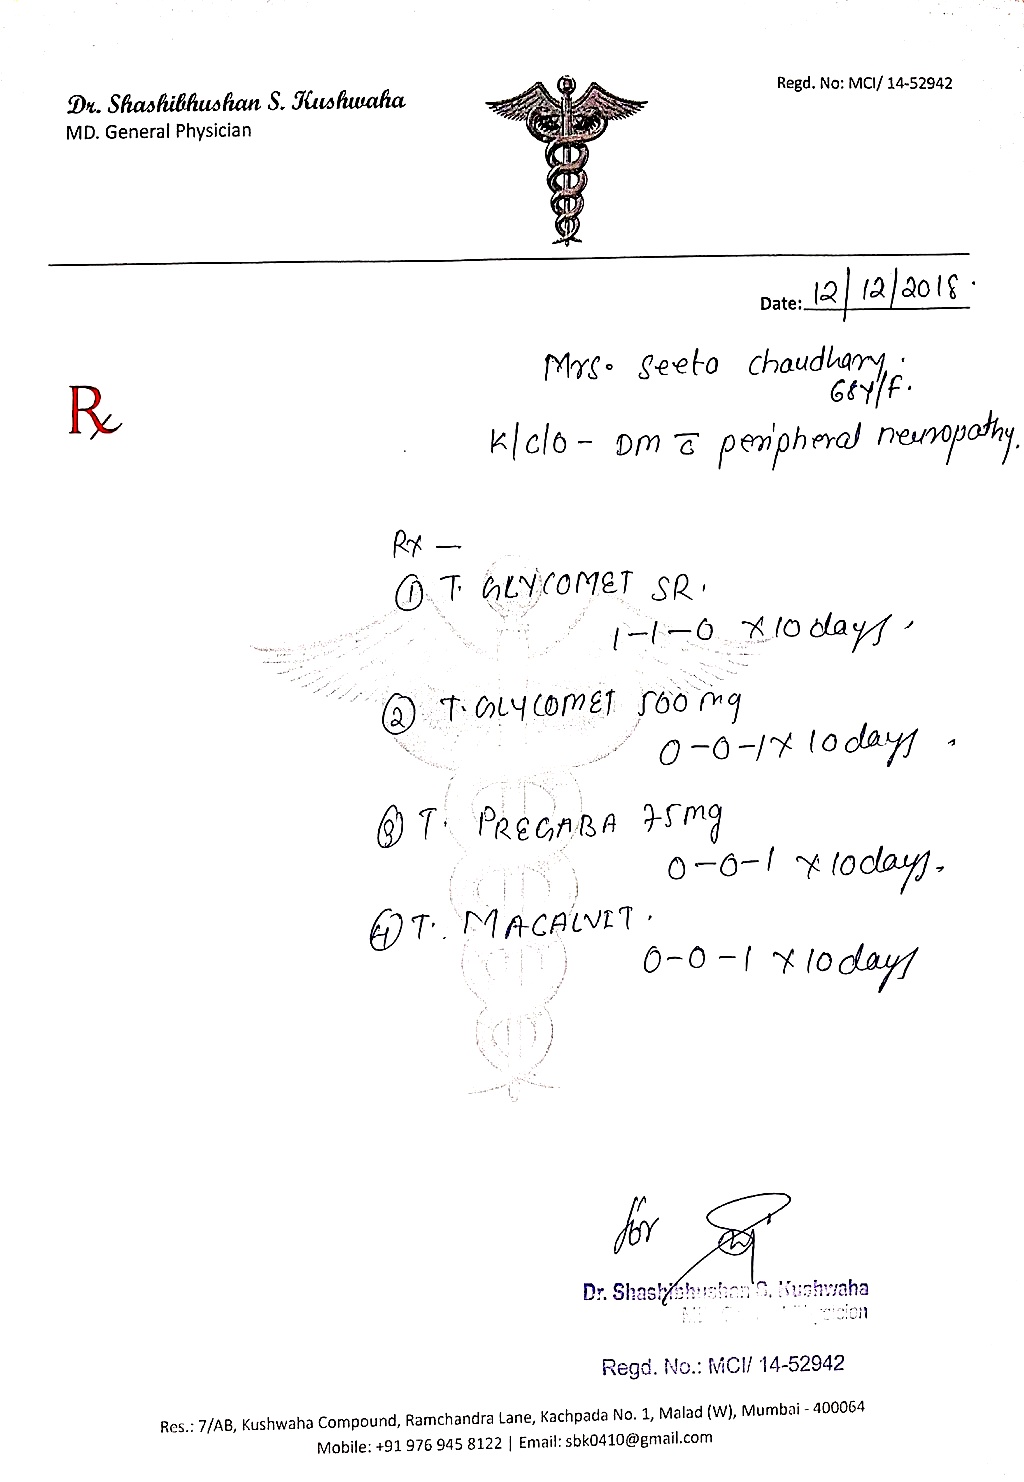 Dr. Shashibhushan S. Kushwaha
MD. General Physician
Regd. No: MCI/ 14-52942
Date: 12/12/2018
Mrs. Seeto Chaudhary.
68Y/F.
Rx
K/C/O - DM c̄ peripheral neuropathy.
Rx —
① T. GLYCOMET SR.
1-1-0 x 10 days.
② T. GLYCOMET 500 mg
0-0-1 x 10 days.
③ T. PREGABA 75mg
0-0-1 x 10 days.
④ T. MACALVIT.
0-0-1 x 10 days
for
Dr. Shashibhushan S. Kushwaha
Regd. No.: MCI/ 14-52942
Res.: 7/AB, Kushwaha Compound, Ramchandra Lane, Kachpada No. 1, Malad (W), Mumbai - 400064
Mobile: +91 976 945 8122 | Email: sbk0410@gmail.com